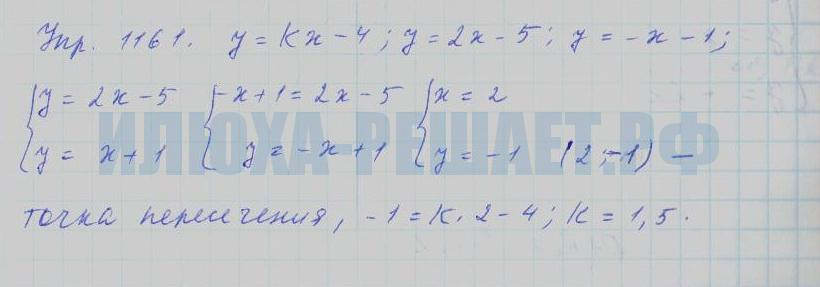 Упр. 1161. y = kx - 4; y = 2x - 5; y = -x - 1;
{ y = 2x - 5 { -x + 1 = 2x - 5 { x = 2
{ y = x + 1 { y = -x + 1 { y = -1 (2; -1) —
ИЛЮХА-РЕШАЕТ.РФ
точка пересечения, -1 = k. 2 - 4; k = 1,5.